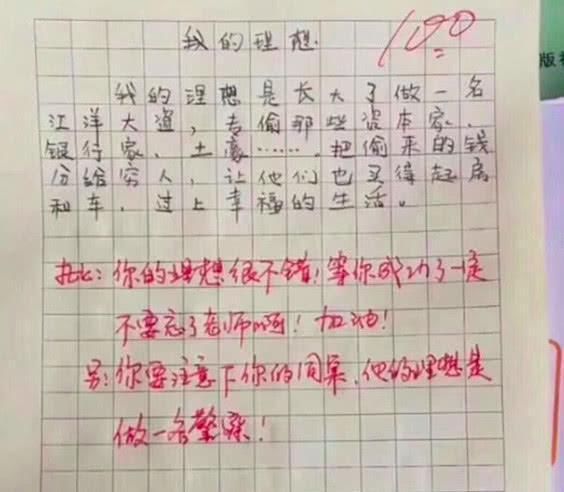 我的理想
100
我的理想是长大了做一名
江洋大盗，去偷那些资本家、
银行家、土豪……把偷来的钱
分给穷人，让他们也买得起房
和车，过上幸福的生活。
批：你的理想很不错！等你成功了一定
不要忘了老师啊！加油！
另：你要注意下你的同桌，他的理想是
做一名警察！
版社